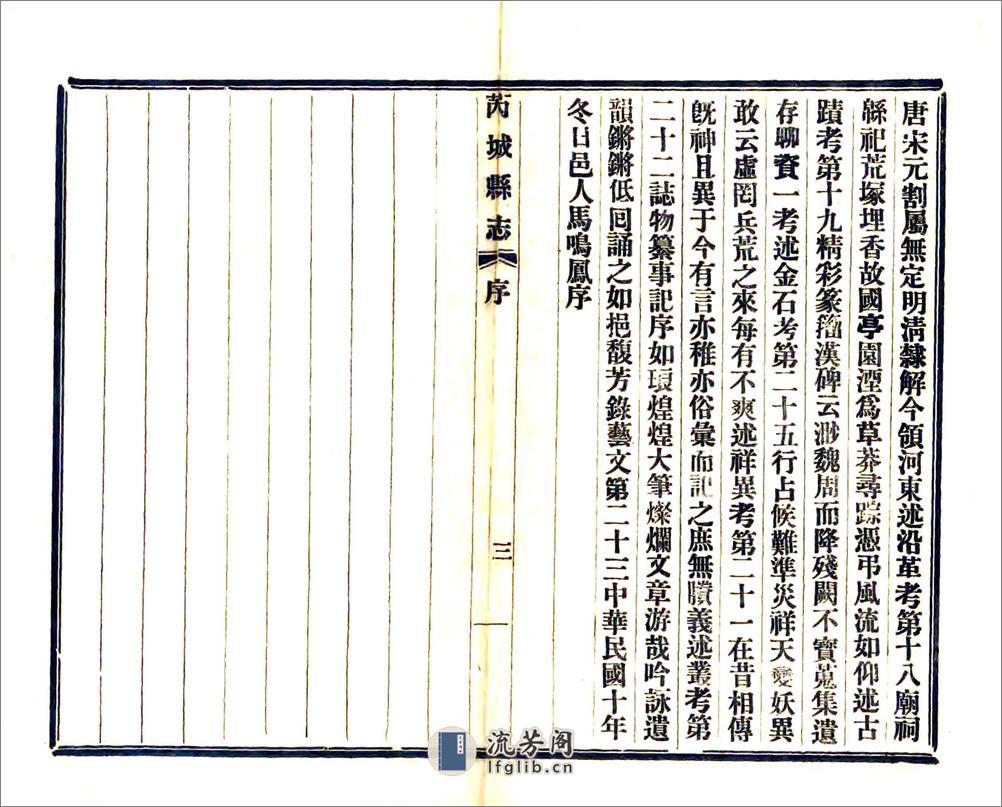 唐宋元割屬無定明淸隸解今領河東述沿革考第十八廟祠
緜祀荒塚埋香故國亭園湮爲草莽尋踪憑弔風流如仰述古
蹟考第十九精彩篆籀漢碑云渺魏周而降殘闕不寶蒐集遺
存聊資一考述金石考第二十五行占候難準災祥天變妖異
敢云虛罔兵荒之來每有不爽述祥異考第二十一在昔相傳
旣神且異于今有言亦稚亦俗彙而記之庶無賸義述叢考第
二十二誌物纂事記序如瓌煌煌大筆燦爛文章游哉吟詠遺
韻鏘鏘低回誦之如挹馥芳錄藝文第二十三中華民國十年
冬日邑人馬鳴鳳序
芮城縣志 序 三
流芳阁
lfglib.cn